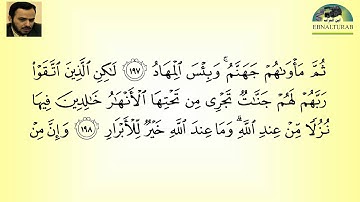 EBNALTURAB
ثُمَّ مَأْوَىٰهُمْ جَهَنَّمُ ۚ وَبِئْسَ الْمِهَادُ ١٩٧ لَٰكِنِ الَّذِينَ اتَّقَوْا
رَبَّهُمْ لَهُمْ جَنَّاتٌ تَجْرِي مِن تَحْتِهَا الْأَنْهَارُ خَالِدِينَ فِيهَا
نُزُلًا مِّنْ عِندِ اللَّهِ ۗ وَمَا عِندَ اللَّهِ خَيْرٌ لِّلْأَبْرَارِ ١٩٨ وَإِنَّ مِنْ